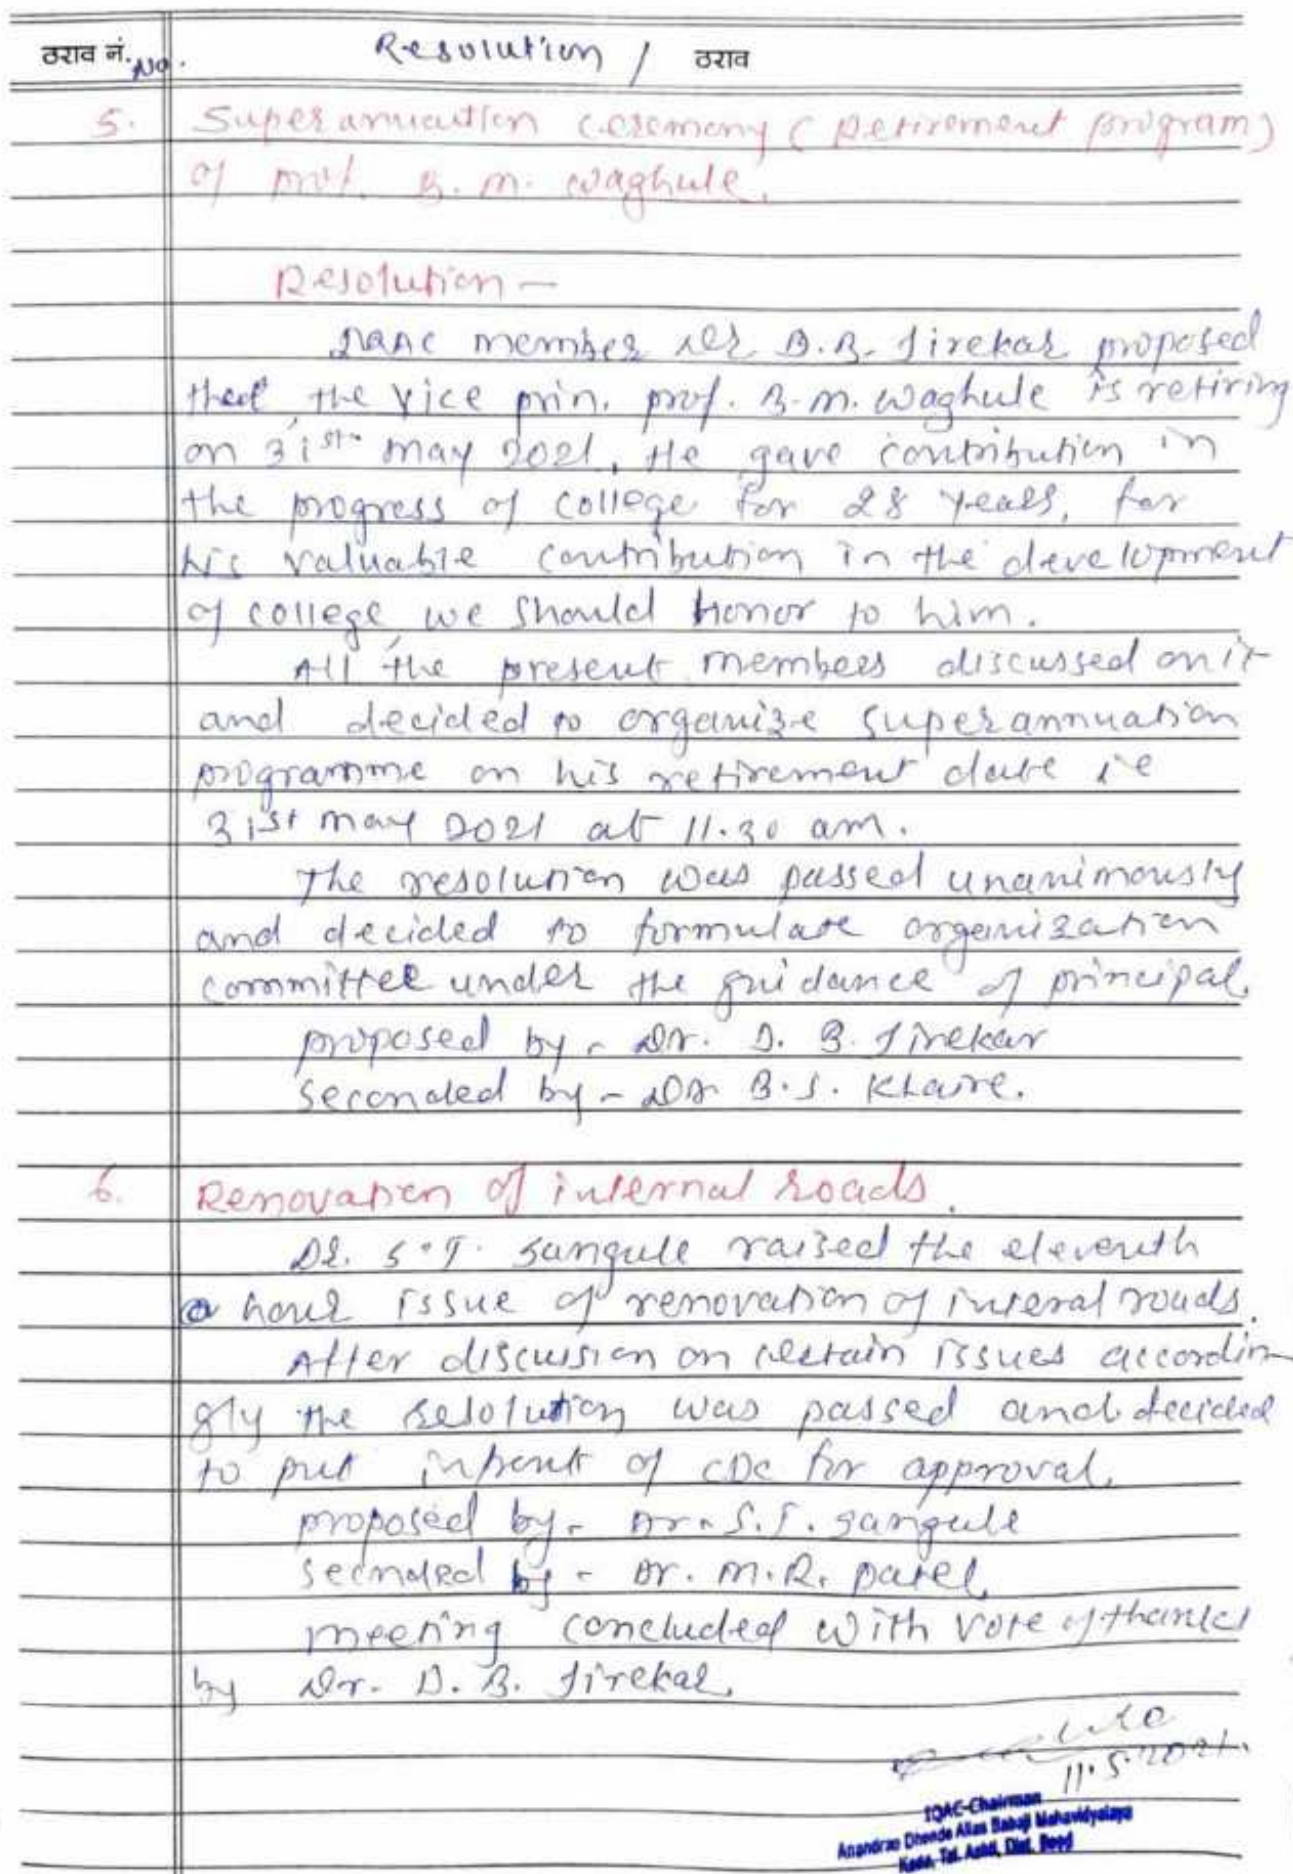 ठराव नं. No. Resolution / ठराव
5. Superannuation ceremony (Retirement program)
of prof. B. M. Waghule.
Resolution -
NAAC member Dr. D.B. Jirekar proposed
that the vice prin. prof. B.M. Waghule is retiring
on 31st may 2021. He gave contribution in
the progress of college for 28 years, for
his valuable contribution in the development
of college, we should honor to him.
All the present members discussed on it
and decided to organize superannuation
programme on his retirement date ie
31st may 2021 at 11.30 am.
The resolution was passed unanimously
and decided to formulate organization
committee under the guidance of principal.
proposed by - Dr. D. B. Jirekar
seconded by - Dr. B.S. Khaire.
6. Renovation of internal roads.
Dr. S.T. Sangule raised the eleventh
hour issue of renovation of interal roads.
After discussion on certain issues accordin-
gly the resolution was passed and decided
to put of CDC for approval.
proposed by - Dr. S.T. Sangule
seconded by - Dr. M.R. Patel
meeting concluded with vote of thanks
by Dr. D. B. Jirekar.
11.5.2021.
IQAC-Chairman
Anandrao Dhonde Alias Babaji Mahavidyalaya
Kada, Tal. Ashti, Dist. Beed